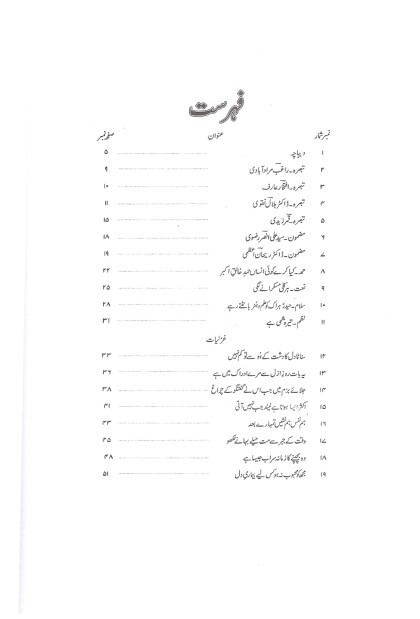 فہرست
نمبر شمار عنوان صفحہ نمبر
۱ دیباچہ ۵
۲ تبصرہ۔ راغب مراد آبادی ۹
۳ تبصرہ۔ افتخار عارف ۱۰
۴ تبصرہ۔ ڈاکٹر ہلال نقوی ۱۱
۵ تبصرہ۔ قمر زیدی ۱۵
۶ مضمون۔ سید علی الصغر رضوی ۱۸
۷ مضمون۔ ڈاکٹر ریحان اعظمی ۱۹
۸ حمد۔ کیا کرے کوئی انساں حمدِ خالقِ اکبر ۲۲
۹ نعت۔ ہر کلی مسکرانے لگی ۲۵
۱۰ سلام۔ حیدرؑ ہر اک کو علم و ہنر بانٹتے رہے ۲۸
۱۱ نظم۔ تیرہ رجبی ہے ۳۱
غزلیات
۱۲ سناٹا دل کا دشت کے ہُو سے تو کم نہیں ۳۳
۱۳ یہ بات روزِ ازل سے مرے ادراک میں ہے ۳۶
۱۴ جلائے بزم میں جب اس نے گفتگو کے چراغ ۳۸
۱۵ اکثر ایسا ہوتا ہے نیند جب نہیں آتی ۴۱
۱۶ ہم نفس ہم نشیں تمہارے بعد ۴۳
۱۷ وقت کے جبر سے مت حیلے بہانے سیکھو ۴۵
۱۸ وہ بچپنے کا زمانہ سراب جیسا ہے ۴۸
۱۹ مجھ کو محبوب نہ ہو کس لیے بیماریِ دل ۵۱